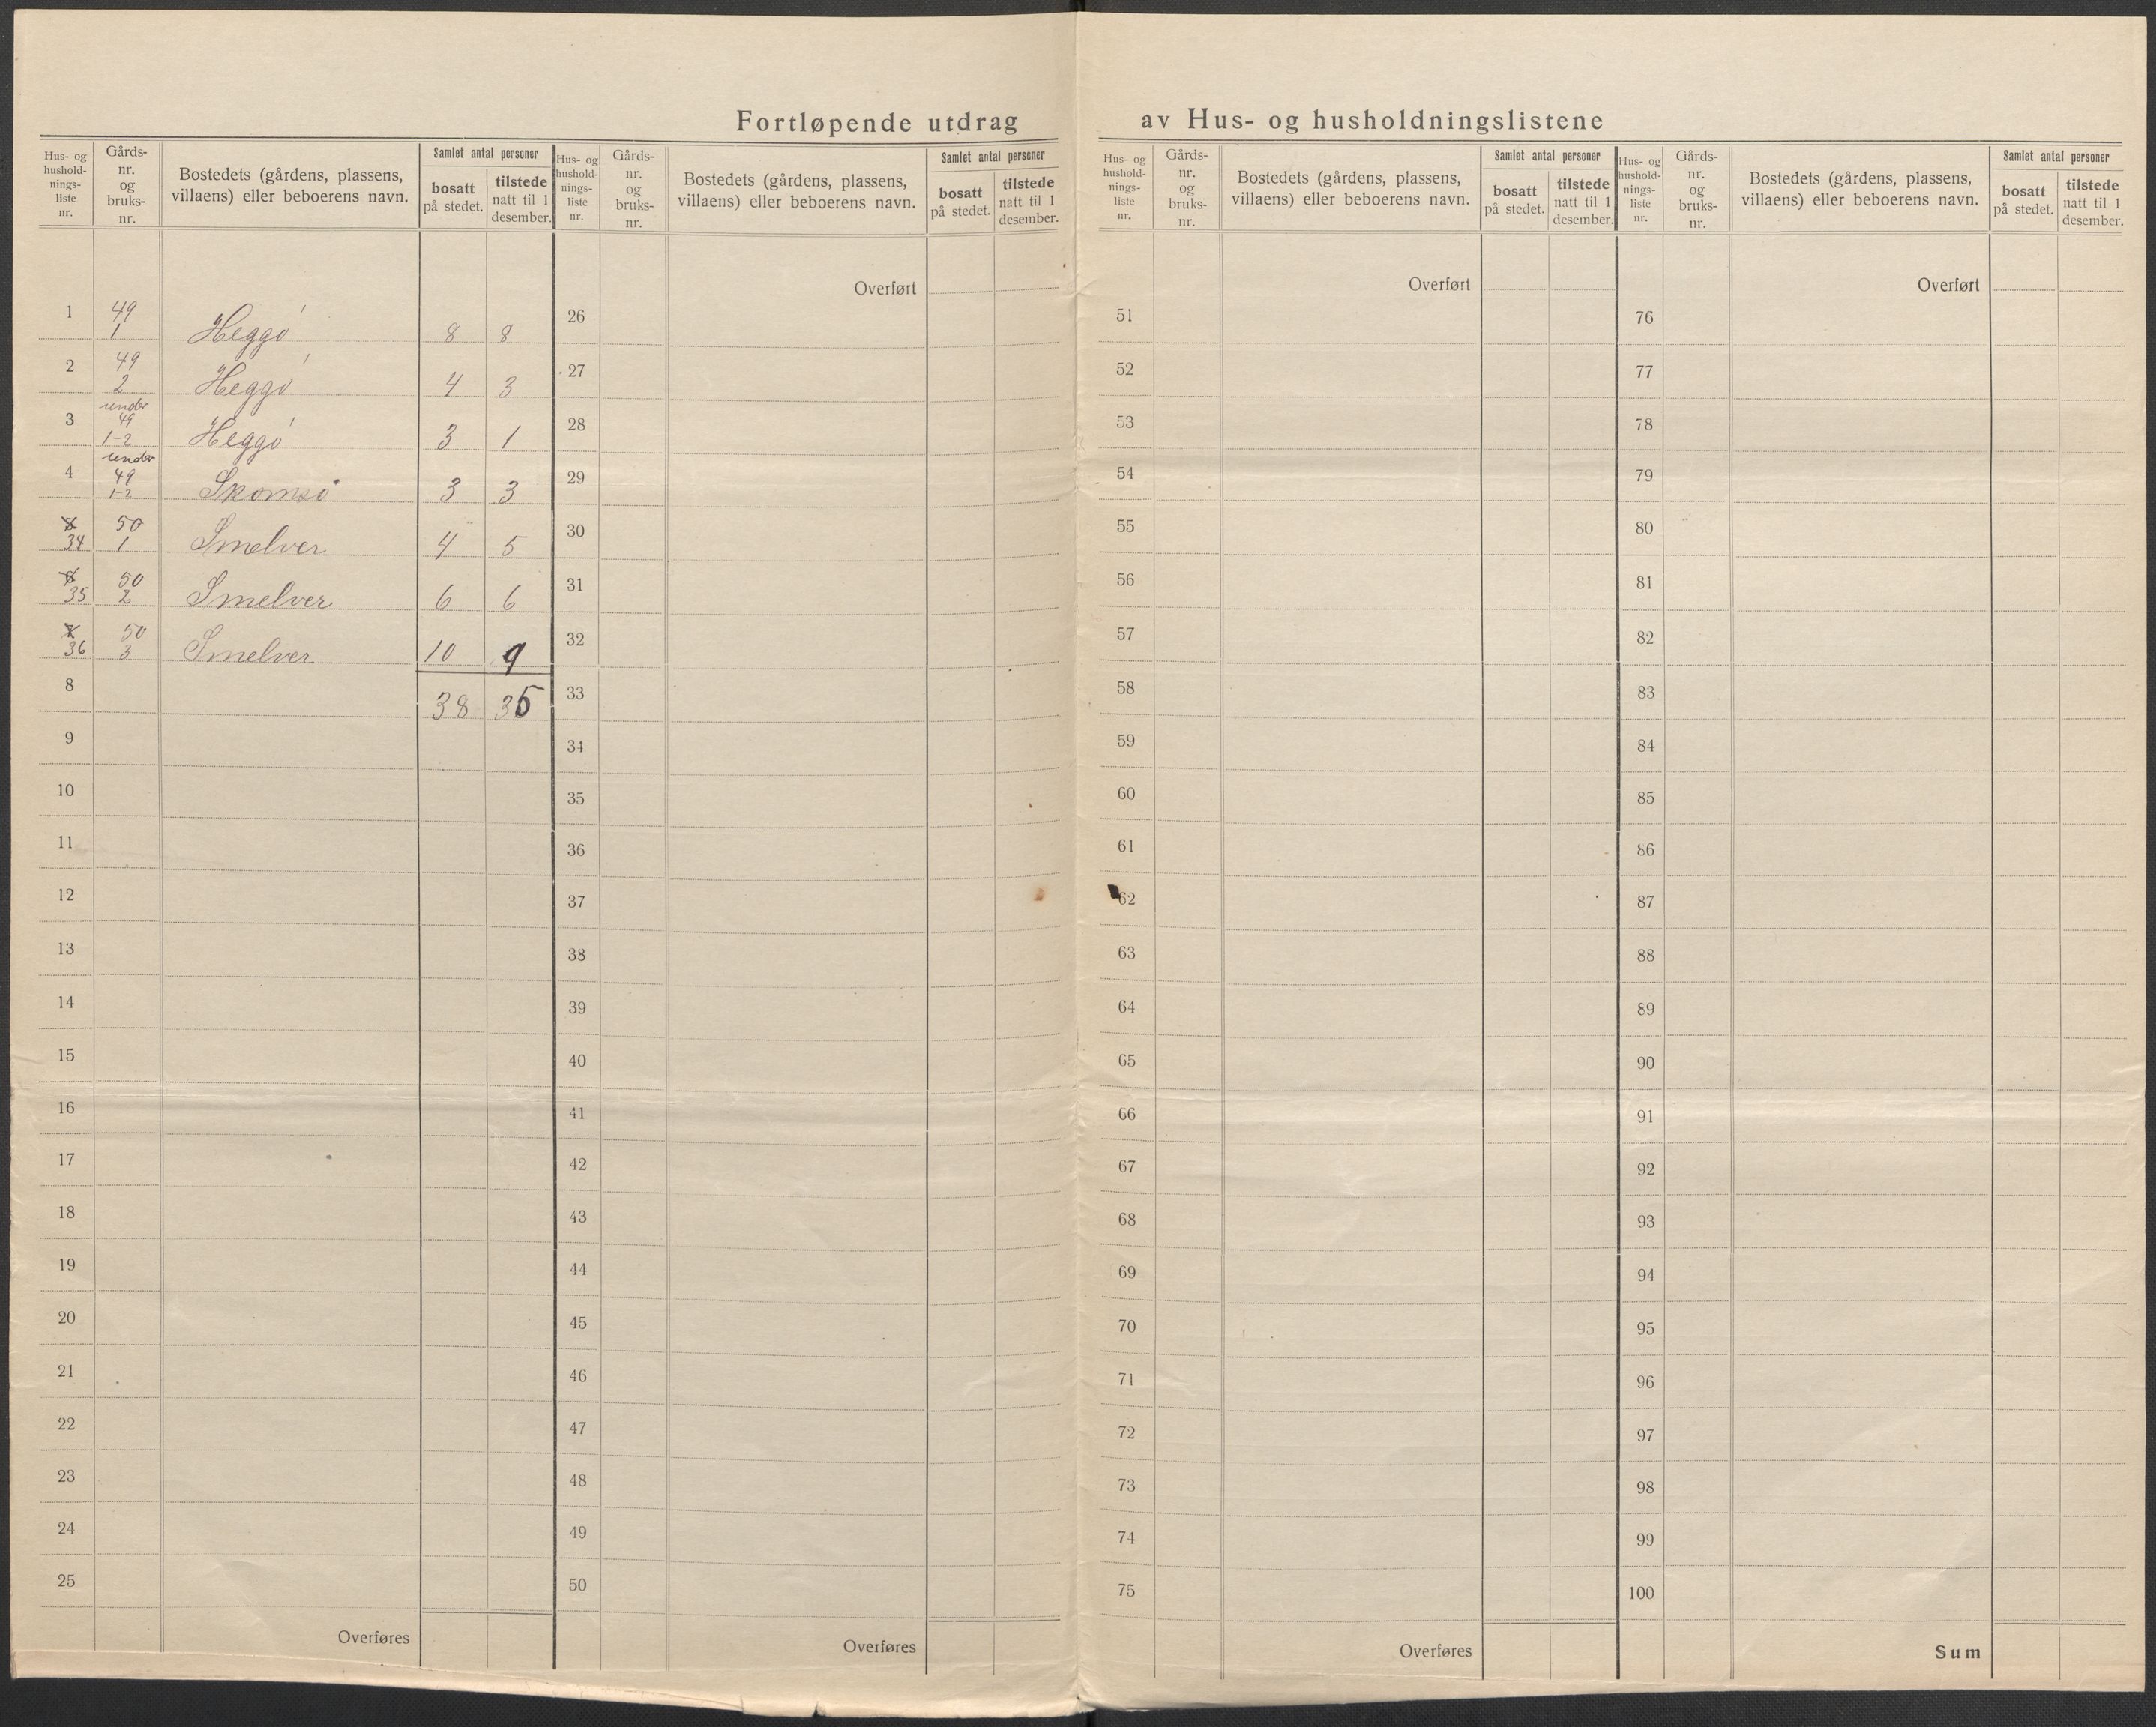 Fortløpende utdrag av Hus- og husholdningslistene
Hus- og hushold-nings-liste nr. | Gårds-nr. og bruks-nr. | Bostedets (gårdens, plassens, villaens) eller beboerens navn. | Samlet antal personer | bosatt på stedet. | tilstede natt til 1 desember.
1 | 49 1 | Heggö | 8 | 8
2 | 49 2 | Heggö | 4 | 3
3 | under 49 1-2 | Heggö | 3 | 1
4 | under 49 1-2 | Skomsö | 3 | 3
5 34 | 50 1 | Smelver | 4 | 5
6 35 | 50 2 | Smelver | 6 | 6
7 36 | 50 3 | Smelver | 10 | 9
8 | 38 | 35
9
10
11
12
13
14
15
16
17
18
19
20
21
22
23
24
25
Overføres
Hus- og hushold-nings-liste nr. | Gårds-nr. og bruks-nr. | Bostedets (gårdens, plassens, villaens) eller beboerens navn. | Samlet antal personer | bosatt på stedet. | tilstede natt til 1 desember.
Overført
26
27
28
29
30
31
32
33
34
35
36
37
38
39
40
41
42
43
44
45
46
47
48
49
50
Overføres
Hus- og hushold-nings-liste nr. | Gårds-nr. og bruks-nr. | Bostedets (gårdens, plassens, villaens) eller beboerens navn. | Samlet antal personer | bosatt på stedet. | tilstede natt til 1 desember.
Overført
51
52
53
54
55
56
57
58
59
60
61
62
63
64
65
66
67
68
69
70
71
72
73
74
75
Overføres
Hus- og hushold-nings-liste nr. | Gårds-nr. og bruks-nr. | Bostedets (gårdens, plassens, villaens) eller beboerens navn. | Samlet antal personer | bosatt på stedet. | tilstede natt til 1 desember.
Overført
76
77
78
79
80
81
82
83
84
85
86
87
88
89
90
91
92
93
94
95
96
97
98
99
100
Sum